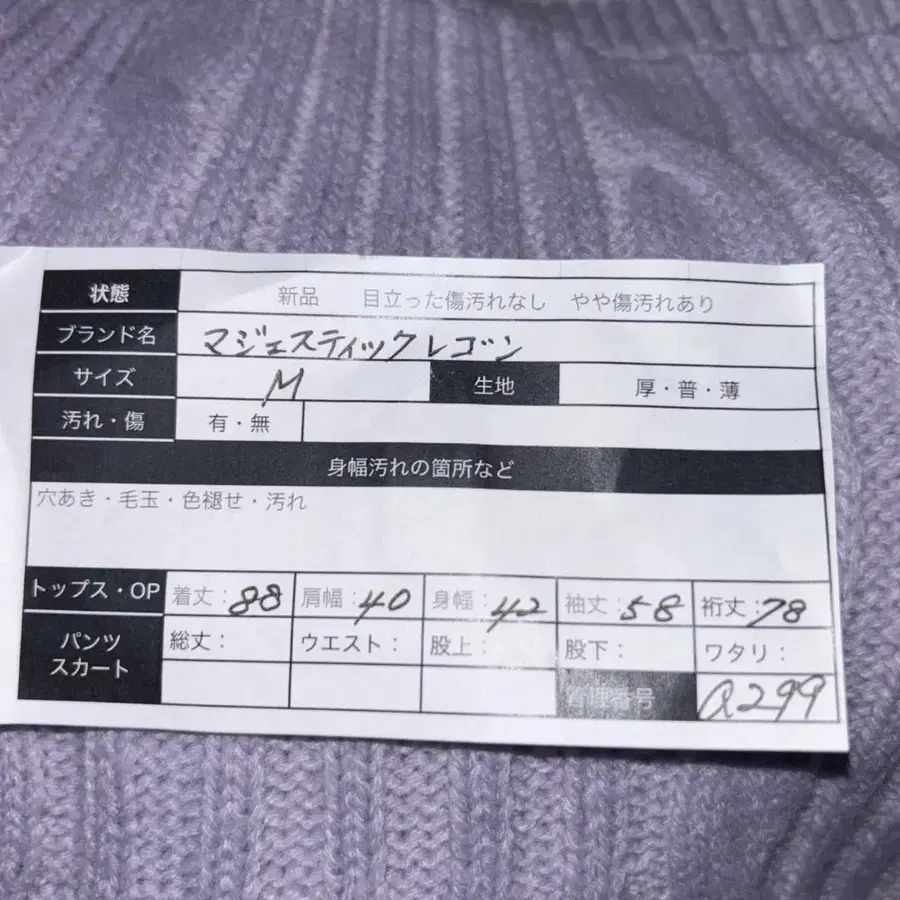 状態 新品 目立った傷汚れなし やや傷汚れあり
ブランド名 マジェスティックレゴン
サイズ M 生地 厚・普・薄
汚れ・傷 有・無
身幅汚れの箇所など
穴あき・毛玉・色褪せ・汚れ
トップス・OP 着丈：88 肩幅：40 身幅：42 袖丈：58 裄丈：78
パンツ スカート 総丈： ウエスト： 股上： 股下： ワタリ：
管理番号 Q299